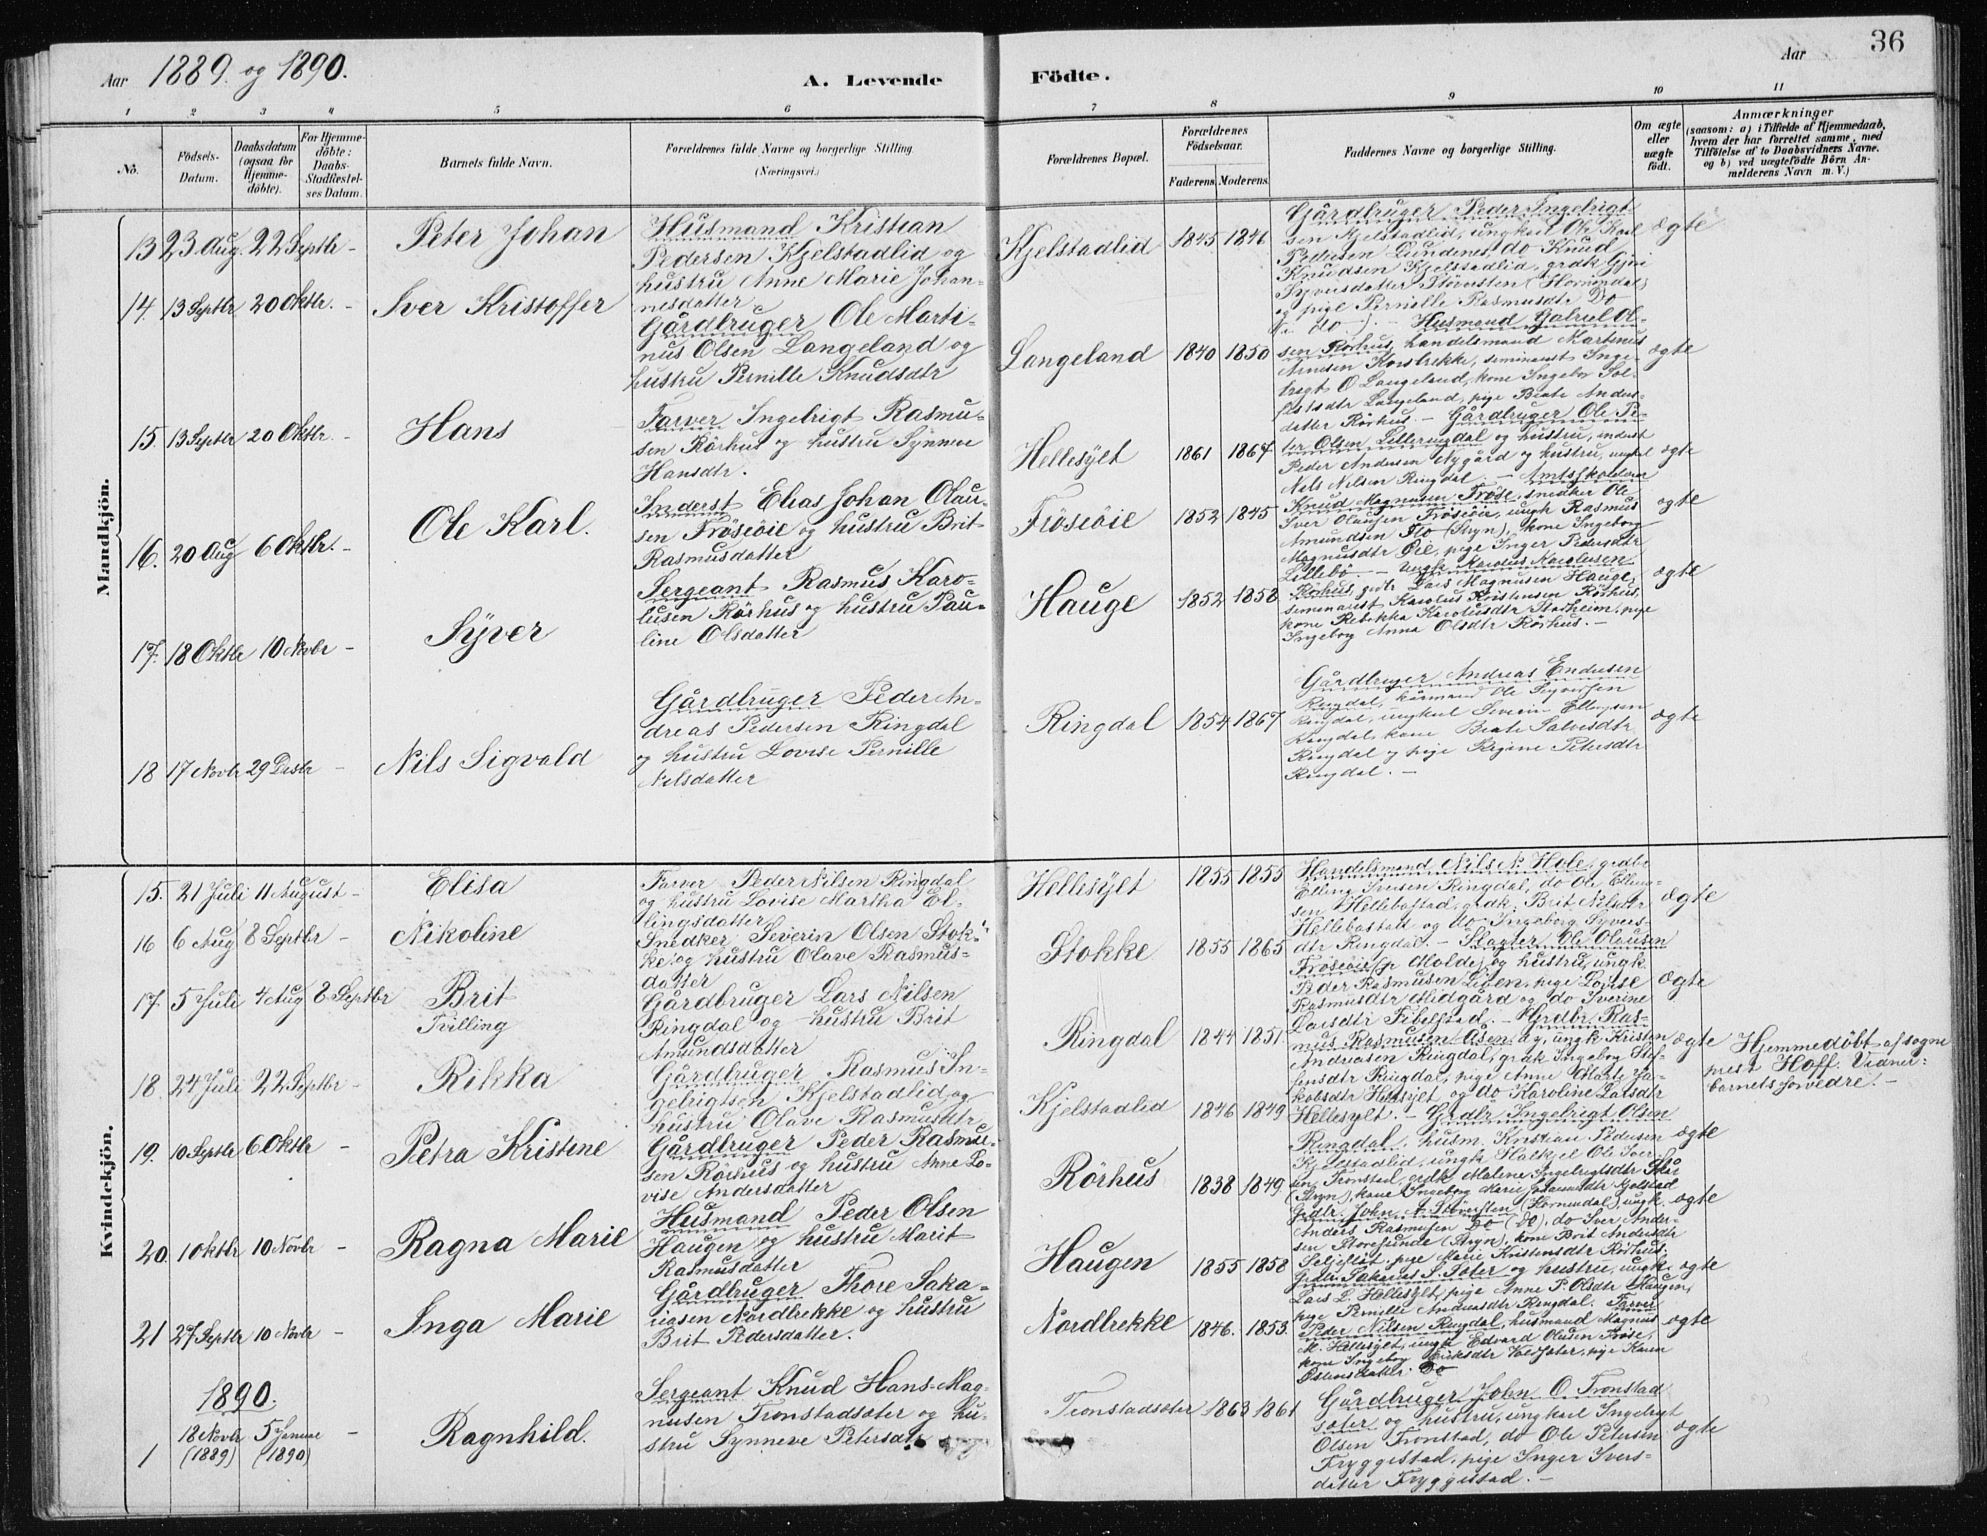 Aar 1889. og 1890.
A. Levende
Födte.
Aar
36
1 2 3 4 5 6 7 8 9 10 11
No.
Födsels-
Datum.
Daabsdatum
(ogsaa for
Hjemme-
döbte).
For Hjemme-
döbte:
Daabs-
Stadfæstel-
ses Datum.
Barnets fulde Navn.
Forældrenes fulde Navne og borgerlige Stilling.
(Næringsvei.)
Forældrenes Bopæl.
Forældrenes
Födselsaar.
Faderens. Moderens.
Faddernes Navne og borgerlige Stilling.
Om ægte
eller
uægte
födt.
Anmærkninger
(saasom: a) i Tilfælde af Hjemmedaab,
hvem der har forrettet samme, med
Tilföielse af to Daabsvidners Navne.
og b) ved uægtefödte Börn An-
melderens Navn m. V.)
Mandkjön.
13 23 Aug. 22 Septbr - Peter Johan
Husmand Kristian
Pedersen Kjelstadlid og
hustru Anne Marie Johan-
nesdatter
Kjelstadlid 1845 1846
Gårdbruger Peder Ingebrigt
sen Kjelstadlid, ungkarl Ole Karl
Pettersen Lundenes, do Knud
Knudsen Kjelstadlid, grdk Gjøri
Syversdatter Störösten (Hornindal)
og pige Pernille Rasmusdtr Do
ægte
14. 13 Septbr 20 Oktbr. - Iver Kristoffer
Gårdbruger Ole Marti-
nus Olsen Langeland og
hustru Pernille Knudsdtr
Langeland 1840 1850
(i do). - Husmand Gabriel Ol-
sen Rörhus, Landelsmand Martinus
Arnesen Korsbrekke, seminarist Inge-
brigt O Langeland, kone Ingebor Sol-
festsdtr Langeland, pige Beate Anders-
datter Rörhus -
ægte
15 13 Septbr 20 Oktbr. - Hans
Farver Ingebrigt Rasmu-
sen Rörhus og hustru Synneve
Hansdtr.
Hellesylt 1861 1867
Gårdbruger Ole Pe-
ter Olsen Lilleringdal og hustru, inderst
Peder Andersen Nygård og hustru, ungkal
Nels Nilsen Ringdal -
ægte
16. 20 Aug 6 Oktbr. - Ole Karl.
Inderst Elias Johan Olau-
sen Fröseöie og hustru Brit
Rasmusdatter
Fröseöie 1852 1845
Amtsskolelærer
Knud Magnusen Fröse, snedker Ole
Iver Olausen Fröseöie, ungk Rasmus
Amundsen Flo (Stryn), kone Ingeborg
Magnusdtr Öie, pige Inger Pedersdtr
Lillebö. -
ægte
17. 18 Oktbr 10 Novbr - Syver
Sergeant Rasmus Karo-
lusen Rörhus og hustru Pau-
line Olsdatter
Hauge 1852 1858
Ungk Karolus Karolusen
Rörhus, grdr Lars Magnusen Hauge,
seminarist Karolus Kristensen Rörhus,
kone Rebekka Karolusdtr Stadheim, pige
Ingeborg Anna Olsdtr Rörhus. -
ægte
18 17 Novbr 29 Desbr - Nils Sigvald
Gårdbruger Peder An-
dreas Pedersen Ringdal
og hustru Lovise Pernille
Nilsdatter
Ringdal 1854 1867
Gårdbruger Andreas Endresen
Ringdal, kårmand Ole Syversen
Ringdal, ungkarl Severin Ellingsen
Ringdal, kone Beate Salvesdtr
Ringdal og pige Regine Petersdtr
Ringdal. -
ægte
Kvindekjön.
15. 21 Juli 11 August - Elisa
Farver Peder Nilsen Ringdal
og hustru Lovise Martha El-
lingsdatter
Hellesylt 1855 1855
Handelsmand Nils N. Hole, grdbr
Elling Iversen Ringdal, do Ole Elling-
sen Hellebostad, grdk. Brit Nilsdtr
Hellebostad og do Ingeborg Syvers-
dtr Ringdal. -
ægte
16 6 Aug 8 Septbr - Nikoline
Snedker Severin Olsen Stok-
ke og hustru Olave Rasmus-
datter
Stokke 1855 1865
Slagter Ole Olausen
Fröseöie (p Molde) og hustru, ungk
Peder Rasmusen Lien, pige Lovise
Rasmusdtr Midgård og do Iverine
Larsdtr Fibelstad. -
ægte
17. 5 Juli 4 Aug 8 Septbr Brit
Tvilling
Gårdbruger Lars Nilsen
Ringdal og hustru Brit
Amundsdatter
Ringdal 1844 1851.
Grdbr. Ras-
mus Rasmusen Åsen, ungk Kristen
Andreasen Ringdal, grdk Ingeborg Stef-
fensdtr Ringdal, pige Anne Marte Ja-
kobsdtr Hellesylt og do Karoline Larsdtr
Hellesylt. -
ægte
Hjemmedöbt af sogne
prest Hoff. Vidner:
barnets forældre. -
18. 24 Juli 22 Septbr - Rikka
Gårdbruger Rasmus In-
gebrigtsen Kjelstadlid og
hustru Olave Rasmusdtr
Kjelstadlid 1846 1849
Grdbr Ingebrigt Olsen
Ringdal, husm. Kristian Pedersen
Kjelstadlid, ungk Halkjel Ole Iver
sen Tronstad, grdk Malene Ingebrigtsdtr
(Stryn), kone Ingeborg Marie
ægte
19. 10 Septbr 6 Oktbr - Petra Kristine
Gårdbruger Peder Rasmu-
sen Rörhus og hustru Anne Lo-
vise Andersdatter
Rörhus 1838 1849
Grdbr. John A Störösten (Hornindal) ungk.
Anders Rasmusen Do (do), do Iver Ander-
sen Storesunde (Stryn), kone Brit Andersdtr
pige Marie Kristensdtr Rörhus.
ægte
20. 1 Oktbr 10 Novbr - Ragna Marie
Husmand Peder Olsen
Haugen og hustru Marit
Rasmusdatter
Haugen 1855 1858
Grdbr. Sakarias S. Sæter og hustru, ungk.
Lars L. Hellesylt, pige Anne P. Olsdtr Haugen,
pige Pernille Andreasdtr Ringdal.
ægte
21 27 Septbr 10 Novbr - Inga Marie
Gårdbruger Thore Saka-
riasen Nordbrekke og hustru
Brit Pedersdatter.
Nordbrekke 1846. 1853.
Farver
Peder Nilsen Ringdal, husmand Magnus
M. Hellesylt, ungk Edvard Olausen Fröse,
kone Ingeborg Eriksdtr, pige Karen
Do
ægte
1890.
1 18 Novbr (1889) 5 Januar (1890) - Ragnhild.
Sergeant Knud Hans-Mag-
nusen Tronstadsæter og hu-
stru Synneve Petersdtr
Tronstadsæter 1863 1861
Gårdbruger John O. Tronstad
sæter og hustru, ungkarl Ingebrigt
Olsen Tronstad, do Ole Petersen
Tryggestad, pige Inger Ivers-
datter Tryggestad. -
ægte